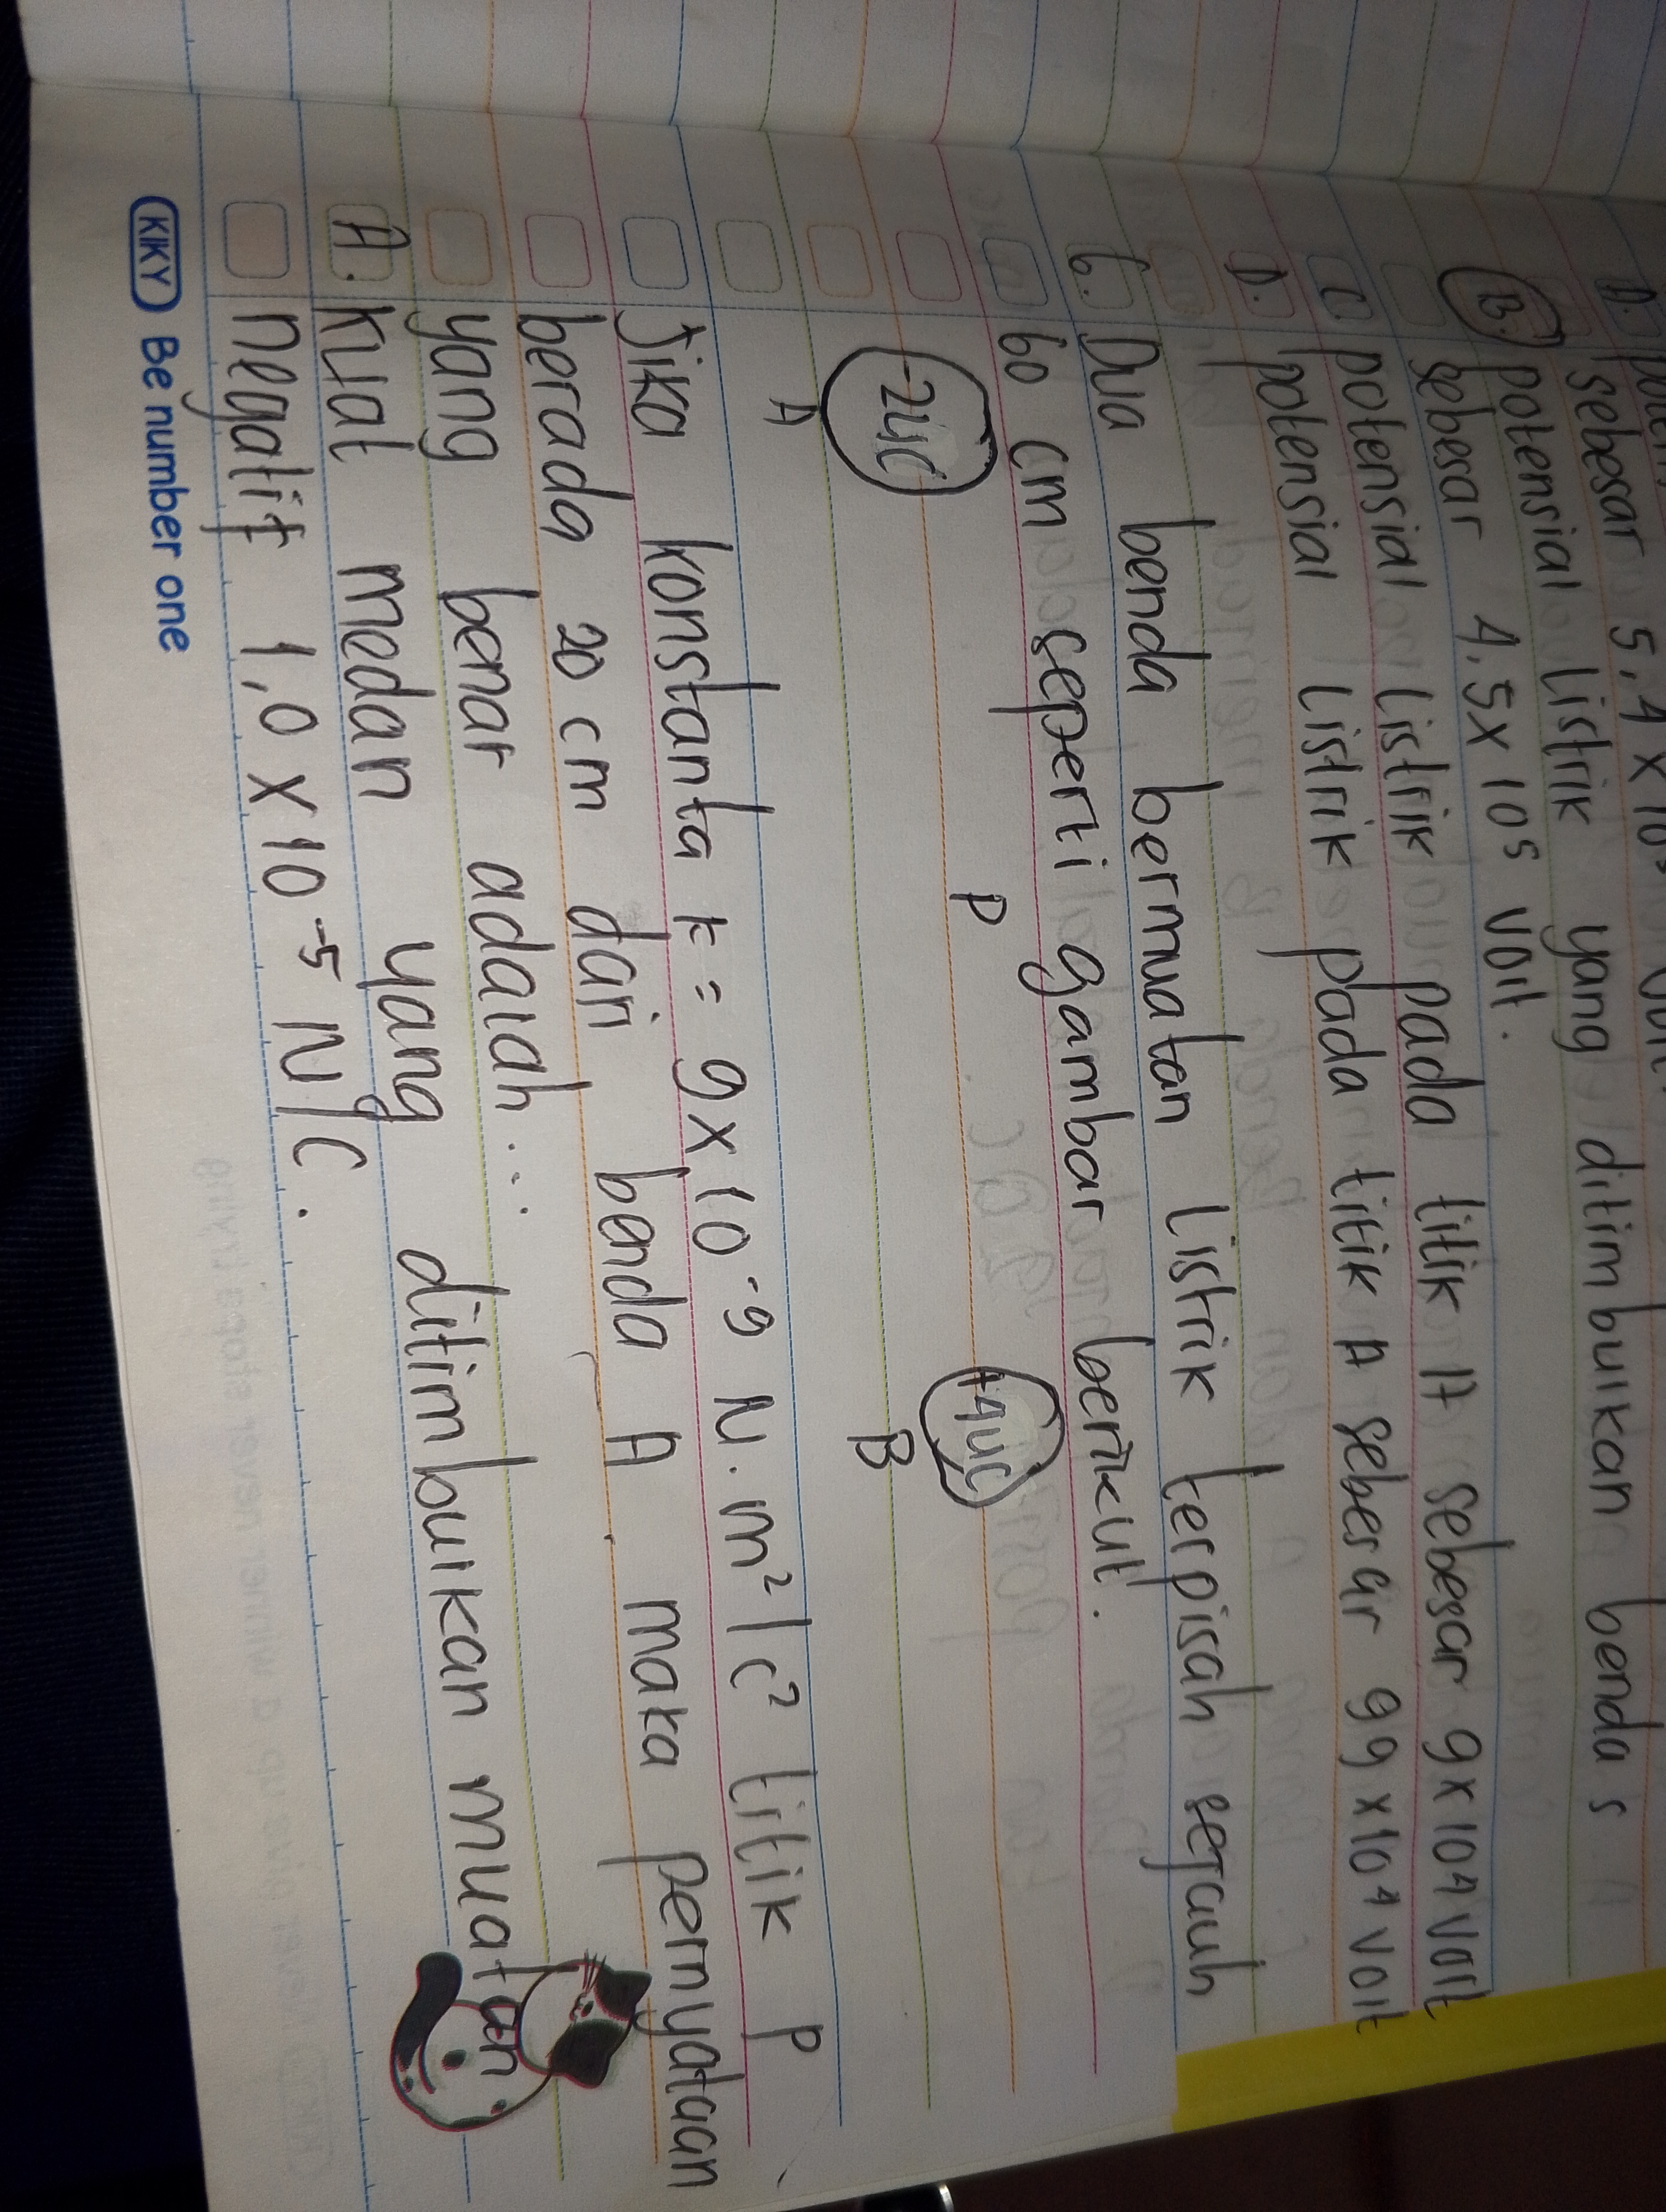 sebesar 5,4 x 10⁵
potensial listrik yang ditimbulkan benda s
B. sebesar 4,5x 10⁵ volt.
C potensial listrik pada titik A sebesar 9x10⁴ volt
D. potensial listrik pada titik A sebesar 99 x10⁴ volt
6. Dua benda bermuatan listrik terpisah sejauh
60 cm seperti gambar berikut.
P
-2uc +4uc
A B
Jika konstanta k = 9x10⁻⁹ N.m²/c² titik P
berada 20 cm dari benda A maka pernyataan
yang benar adalah...
A. kuat medan yang ditimbulkan muatan
negatif 1,0 x 10⁻⁵ N/C.
KIKY Be number one